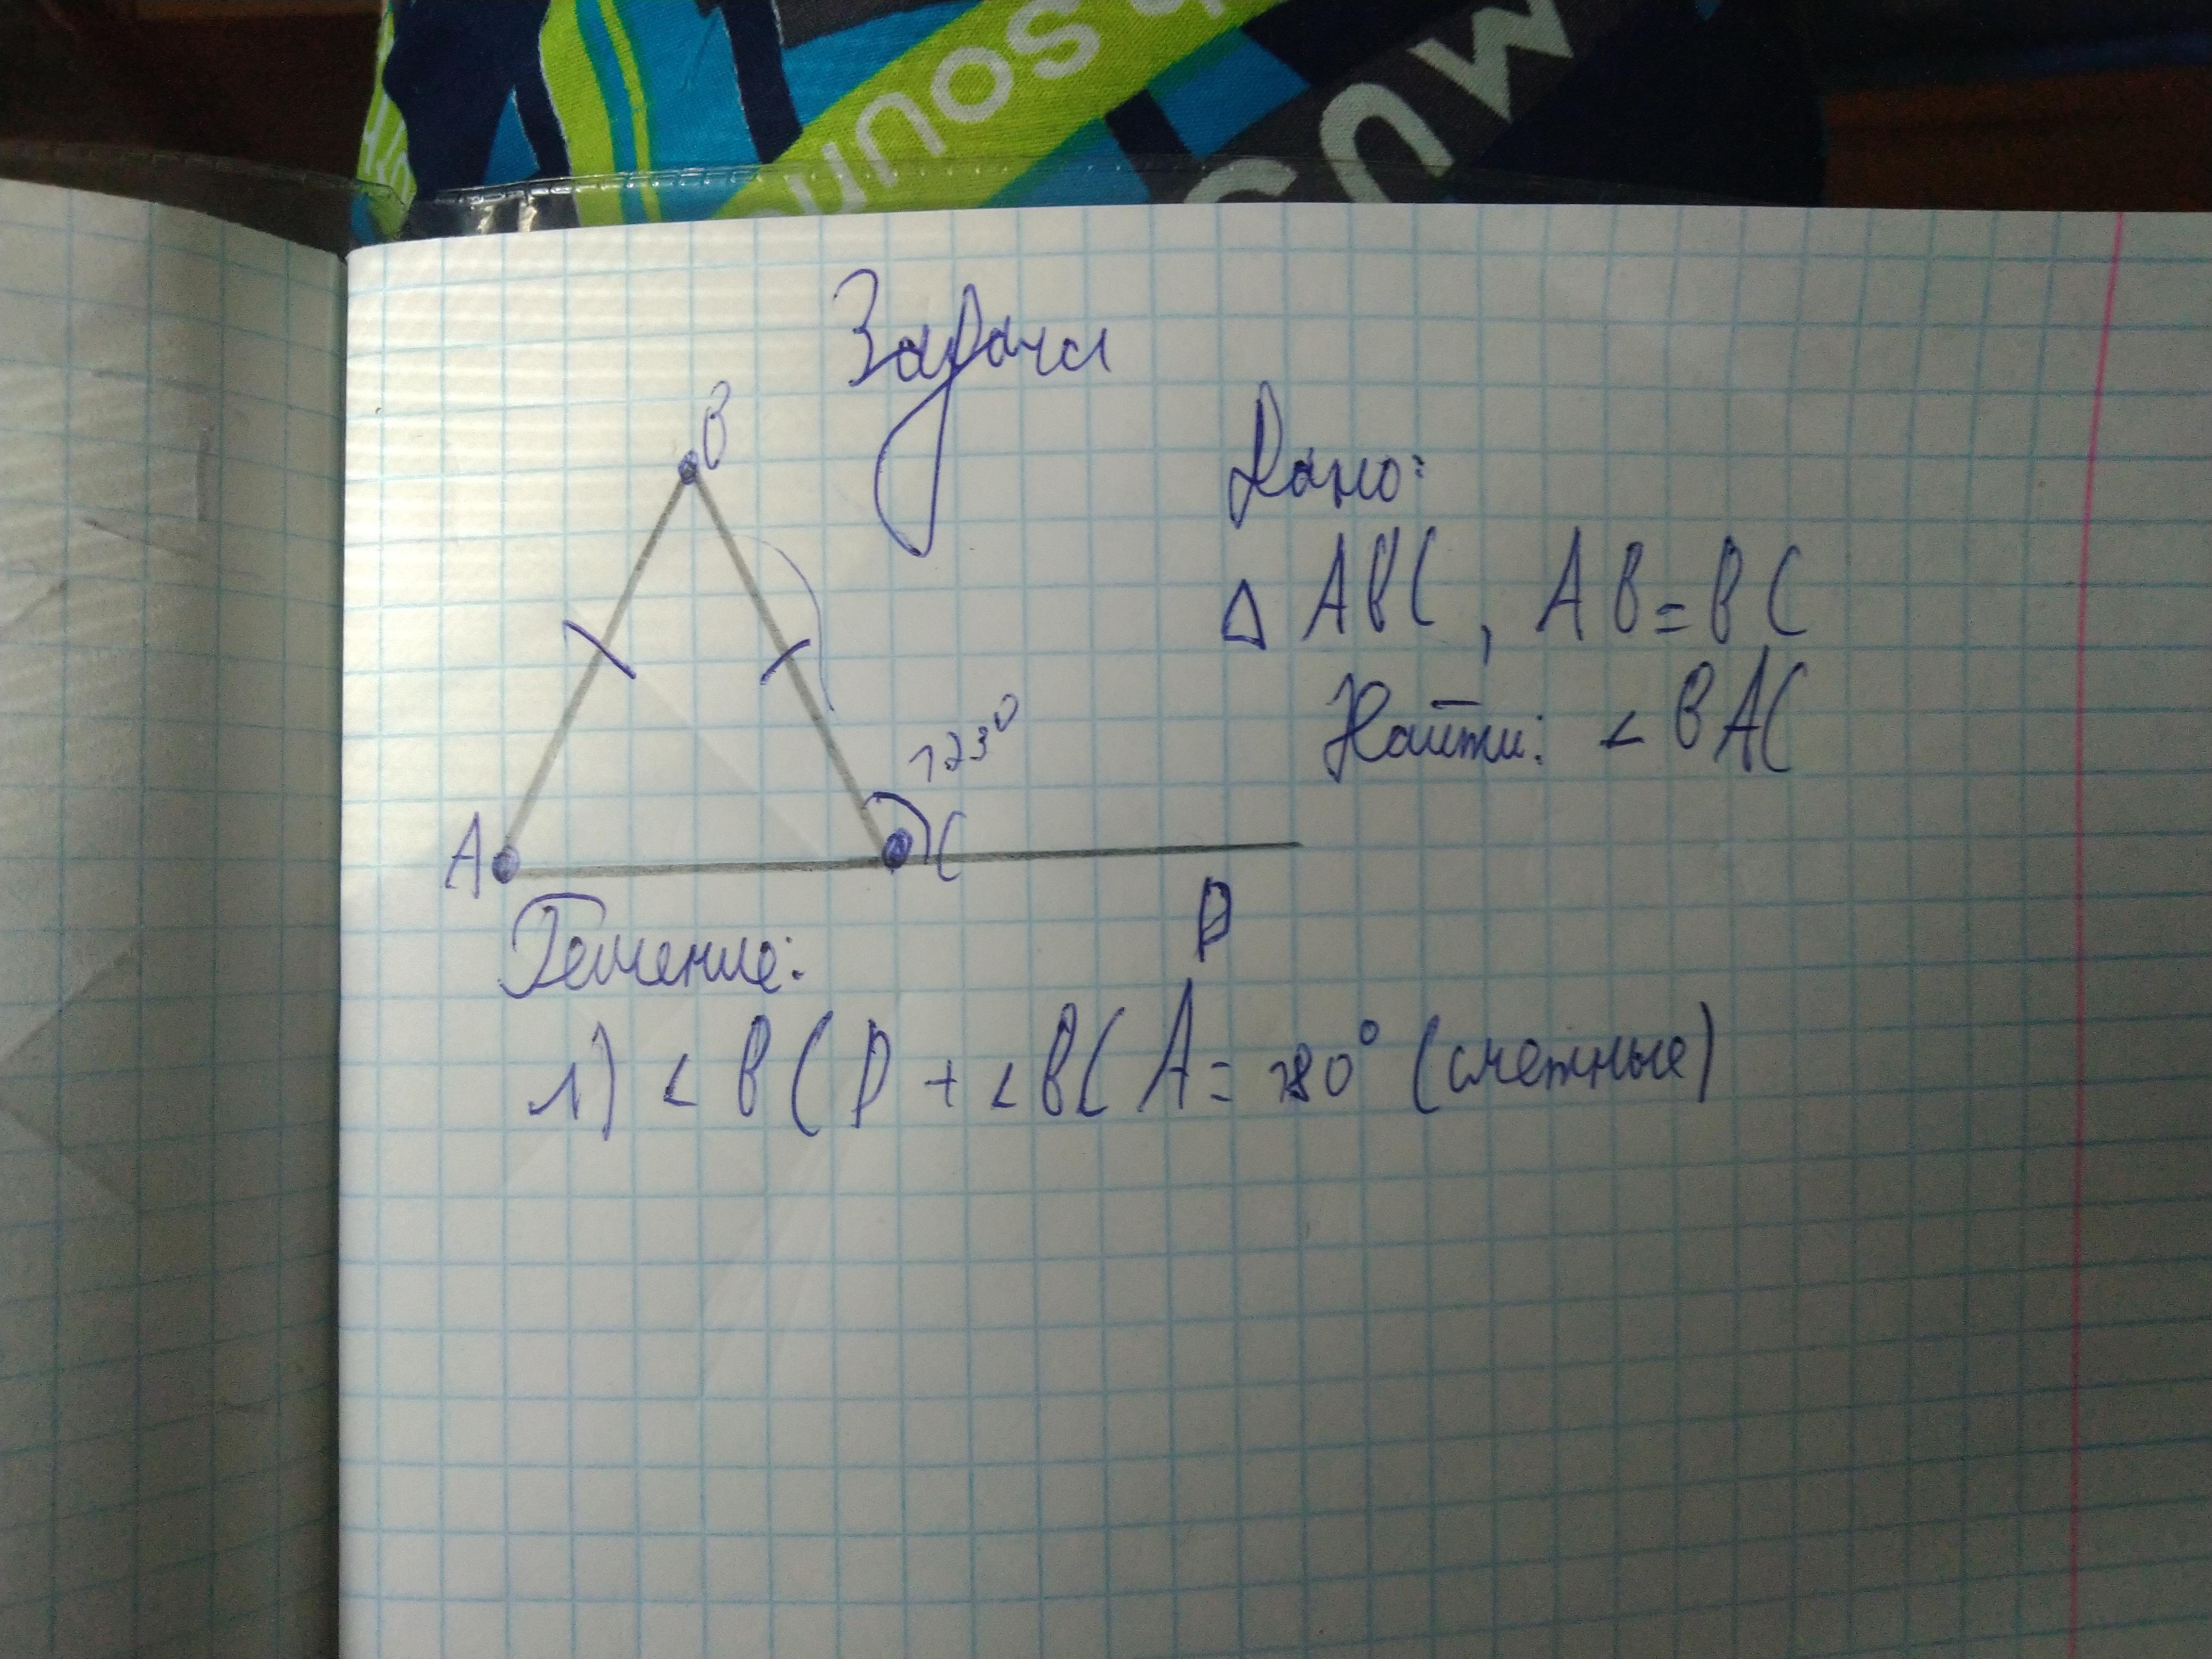 Задача
B
Дано:
△ ABC, AB=BC
Найти: < BAC
123°
A
C
D
Решение:
1) < BCD + < BCA = 180° (смежные)